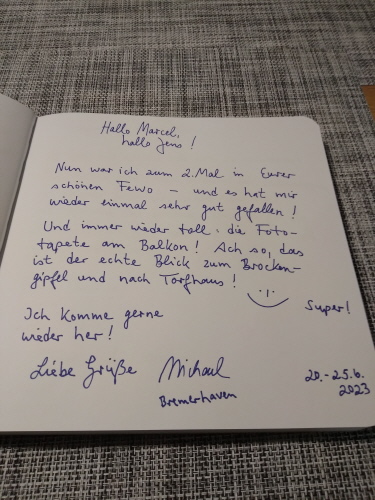 Hallo Marcel,
hallo Jens!
Nun war ich zum 2. Mal in Eurer
schönen Fewo – und es hat mir
wieder einmal sehr gut gefallen!
Und immer wieder toll: die Foto-
tapete am Balkon! Ach so, das
ist der echte Blick zum Brocken-
gipfel und nach Torfhaus!
Super!
Ich komme gerne
wieder her!
Liebe Grüße Michael
Bremerhaven
20.-25.6.
2023